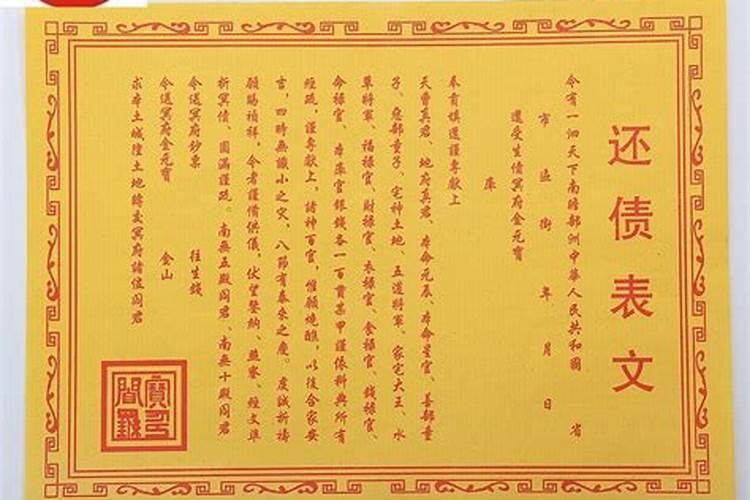 还债表文
今有一泗天下南瞻部洲中華人民共和國 省
市 區 街 年 月 日
還受生債冥府金元寶
庫
奉育填還謹專献上
天曹真君、地府真君、本命元辰、本命星官、善部童
子、惡部童子、宅神土地、五道將軍、家宅大王、水
草將軍、福禄官、財禄官、衣禄官、食禄官、錢禄官、
命禄官、本庫官銀錢各一百貫某甲謹依科典所有
經疏，謹專献上，諸神百官，惟願燒醮，以後合家安
吉，四時無譏小之灾，八節有泰來之慶。虔誠祈禱
願賜禎祥，令者謹備供儀，伏望鑒納、燕寥、經文準
折冥債、圆滿謹疏。南無五殿阎君、南無十殿阎君
令送冥府鈔票 往生錢
令送冥府金元寶 金山
求本土城隍土地轉交冥府諸位阎君